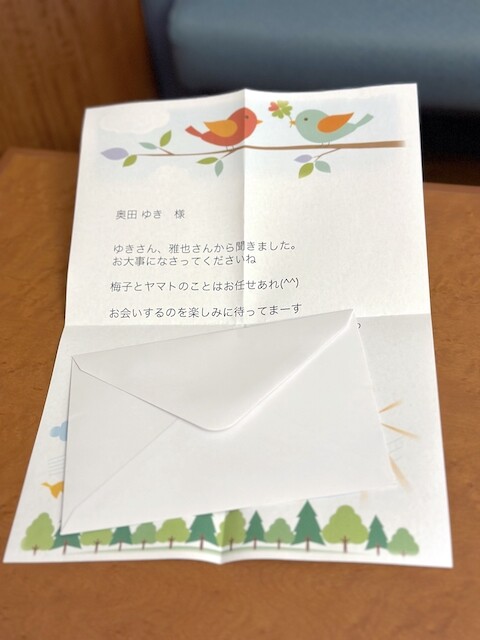 奥田 ゆき 様
ゆきさん、雅也さんから聞きました。
お大事になさってくださいね
梅子とヤマトのことはお任せあれ(^^)
お会いするのを楽しみに待ってまーす